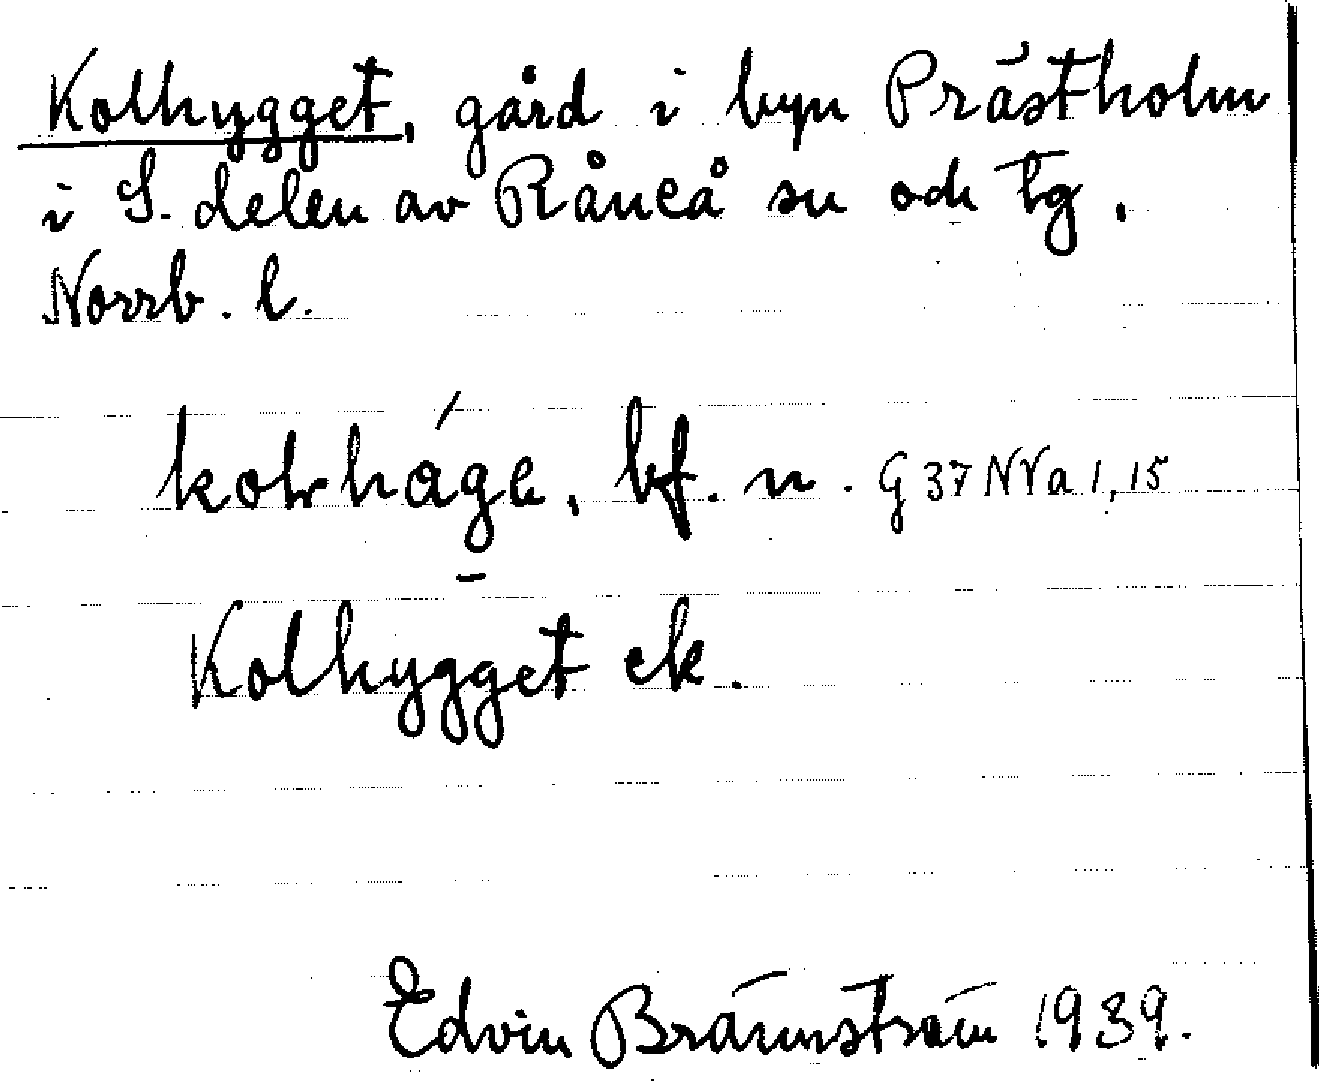 Kolhygget, gård i byn Prästholm
i S. delen av Råneå sn och tg.
Norrb. l.
bf. n. G 37 NVa 1,15
Kolhygget ek.
Edvin Brännström 1939.